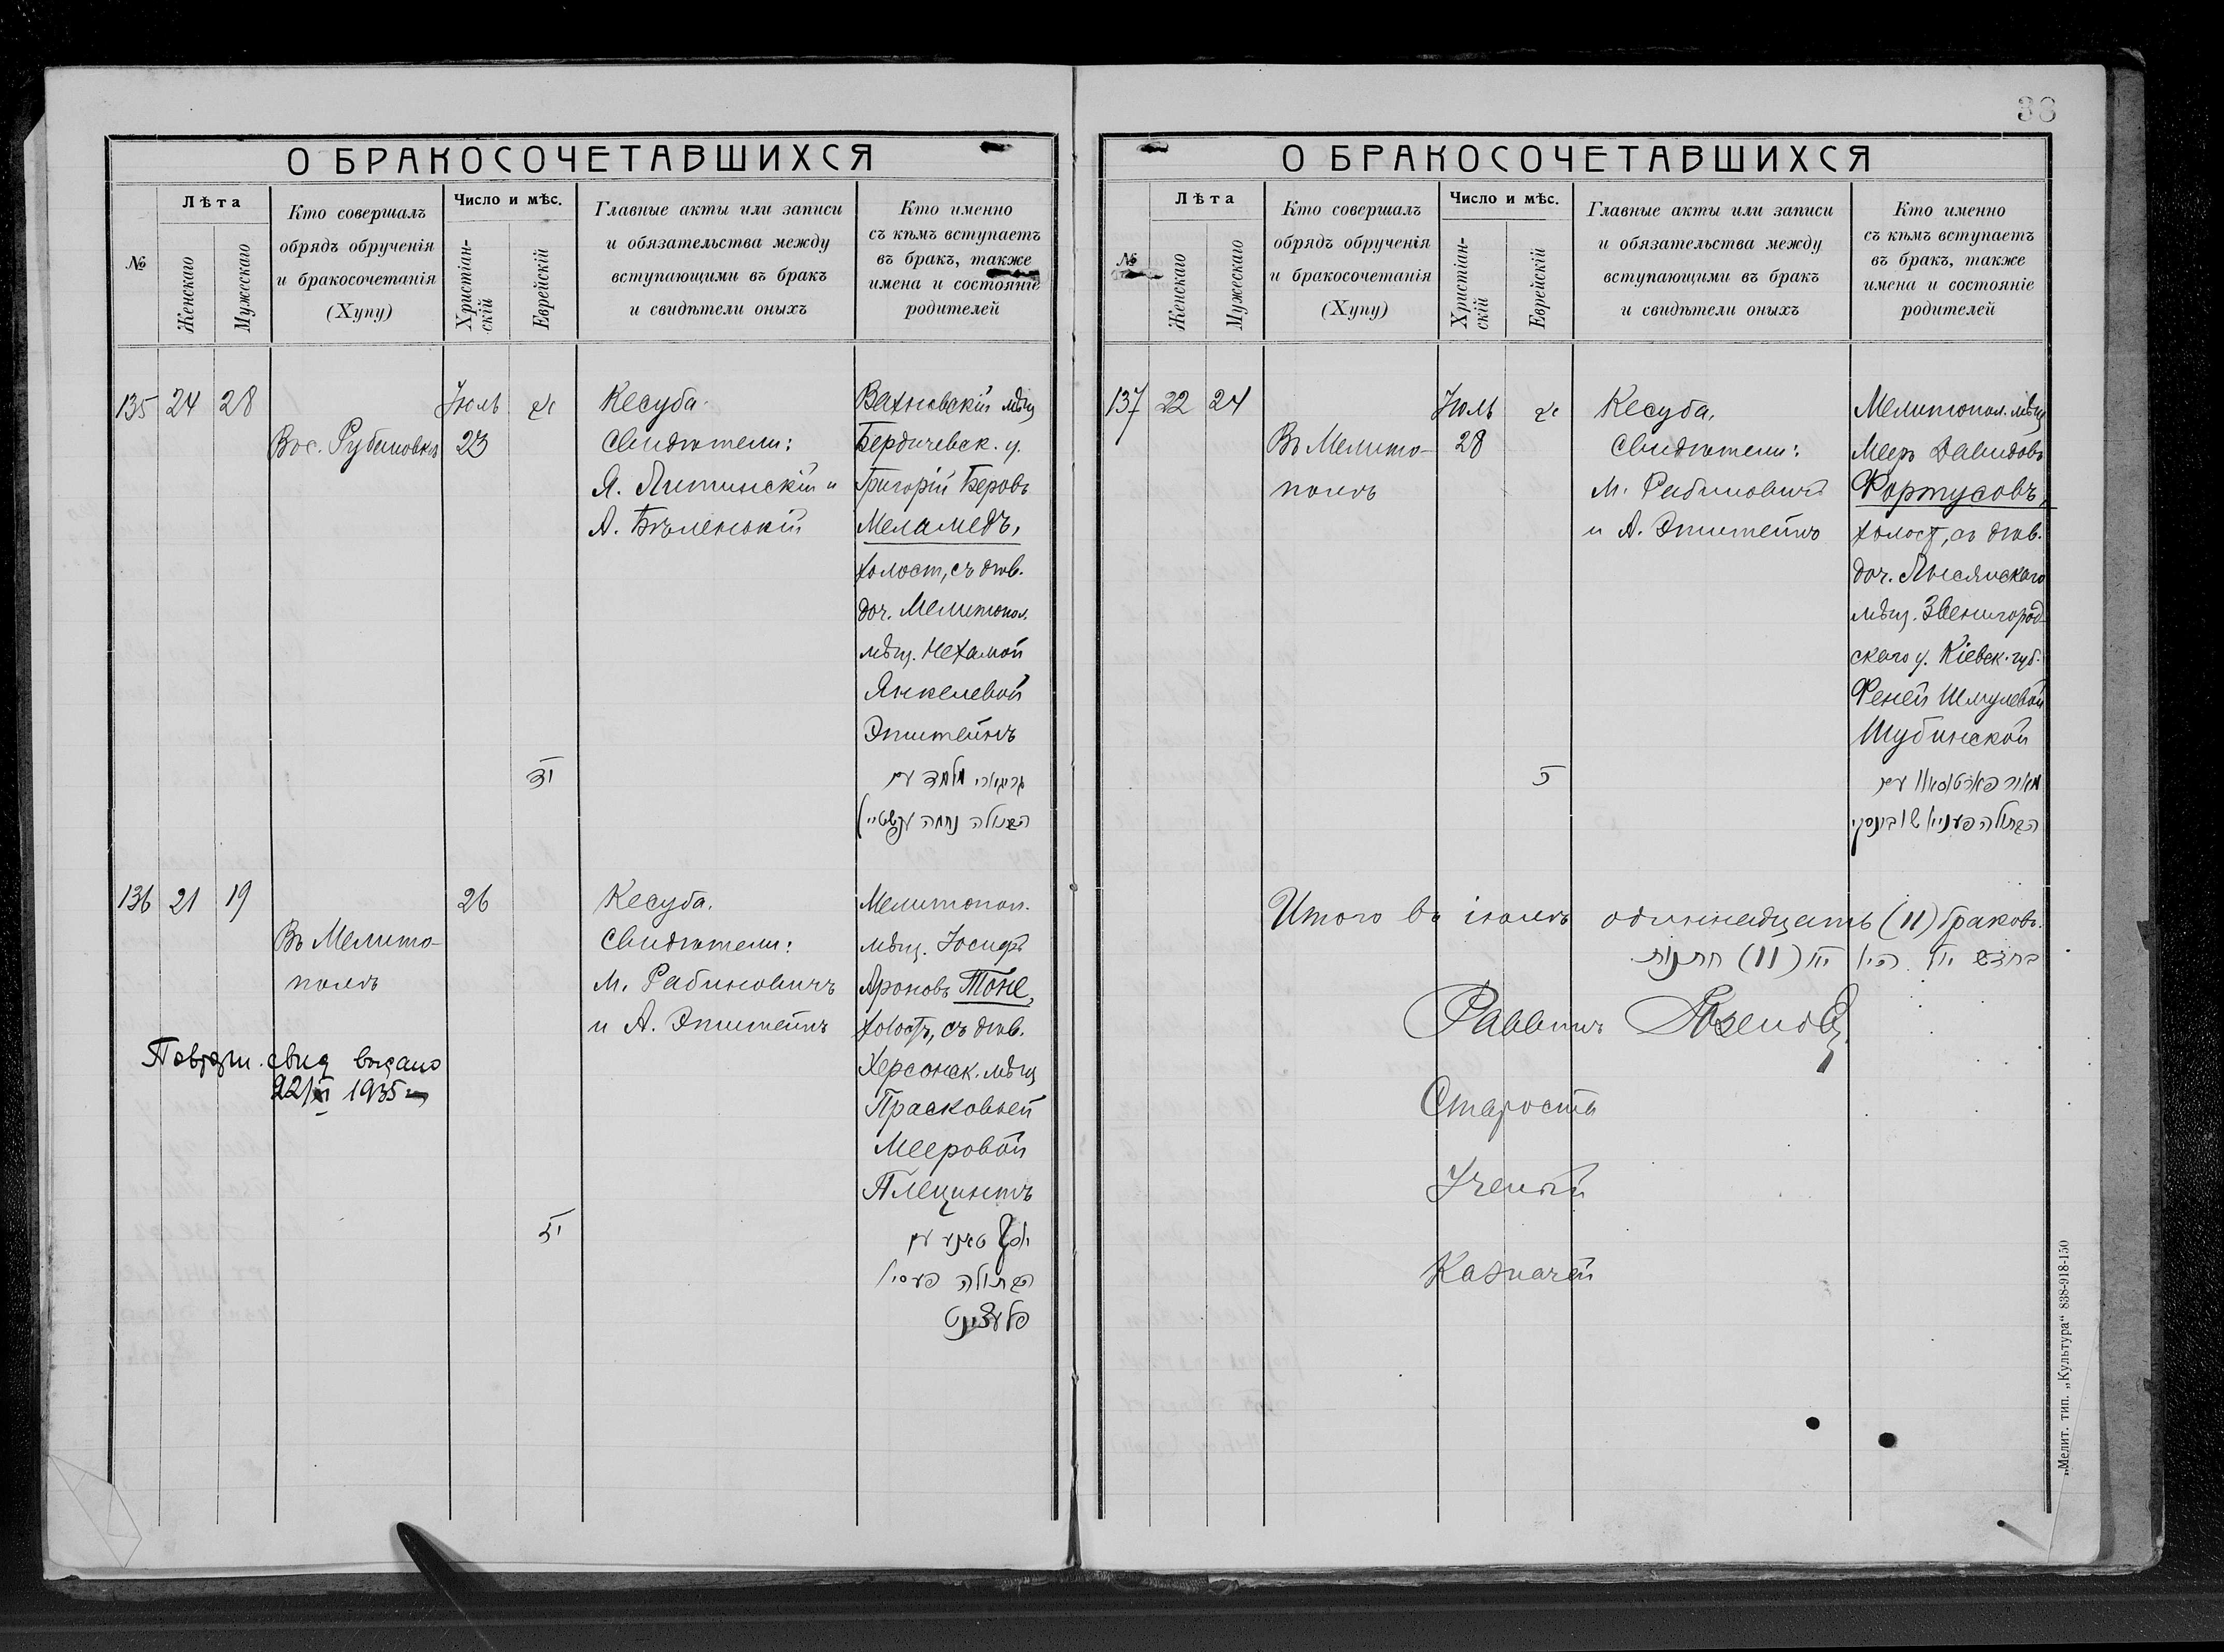 38
О БРАКОСОЧЕТАВШИХСЯ
№
Лѣта
Женскаго
Мужескаго
Кто совершалъ
обрядъ обрученія
и бракосочетанія
(Хупу)
Число и мѣс.
Христіан-
скій
Еврейскій
Главные акты или записи
и обязательства между
вступающими въ бракъ
и свидѣтели оныхъ
Кто именно
съ кѣмъ вступаетъ
въ бракъ, также
имена и состояніе
родителей
135 24 28
Вос. Рубановкѣ
Іюль
23
Кесуба.
Свидѣтели:
Я. Литинскій и
А. Бѣленькій
Вахновскій мѣщ
Бердичевск. у.
Григорій Беровъ
Меламедъ,
холост, съ дѣв.
доч. Мелитопол.
мѣщ. Нехамой
Янкелевой
Эпштейнъ
מלמד עם
הבתולה נחמה
136 21 19
Въ Мелито-
полѣ
26
Кесуба.
Свидѣтели:
М. Рабиновичъ
и А. Эпштейнъ
Мелитопол.
мѣщ. Іосифъ
Ароновъ Тоне,
холостъ, съ дѣв.
Херсонск. мѣщ
Прасковьей
Мееровой
Плецинтъ
יוסף טאנע עם
הבתולה
Повторн. свид выдано
22/XI 1935 г
О БРАКОСОЧЕТАВШИХСЯ
№
Лѣта
Женскаго
Мужескаго
Кто совершалъ
обрядъ обрученія
и бракосочетанія
(Хупу)
Число и мѣс.
Христіан-
скій
Еврейскій
Главные акты или записи
и обязательства между
вступающими въ бракъ
и свидѣтели оныхъ
Кто именно
съ кѣмъ вступаетъ
въ бракъ, также
имена и состояніе
родителей
137 22 24
Въ Мелито-
полѣ
Іюль
28
Кесуба.
Свидѣтели:
М. Рабиновичъ
и А. Эпштейнъ
Мелитопол. мѣщ
Мееръ Давидовъ
Фортусовъ,
холост, съ дѣв.
доч. Лысянского
мѣщ. Звенигород-
скаго у. Кіевск. губ.
Феней Шмулевой
Шубинской
מאיר עם
הבתולה
Итого въ іюлѣ одиннадцать (11) браковъ.
(11) חתונות
Раввинъ
Староста
Ученый
Казначей
„Мелит. тип. „Культура“ 838-918-150